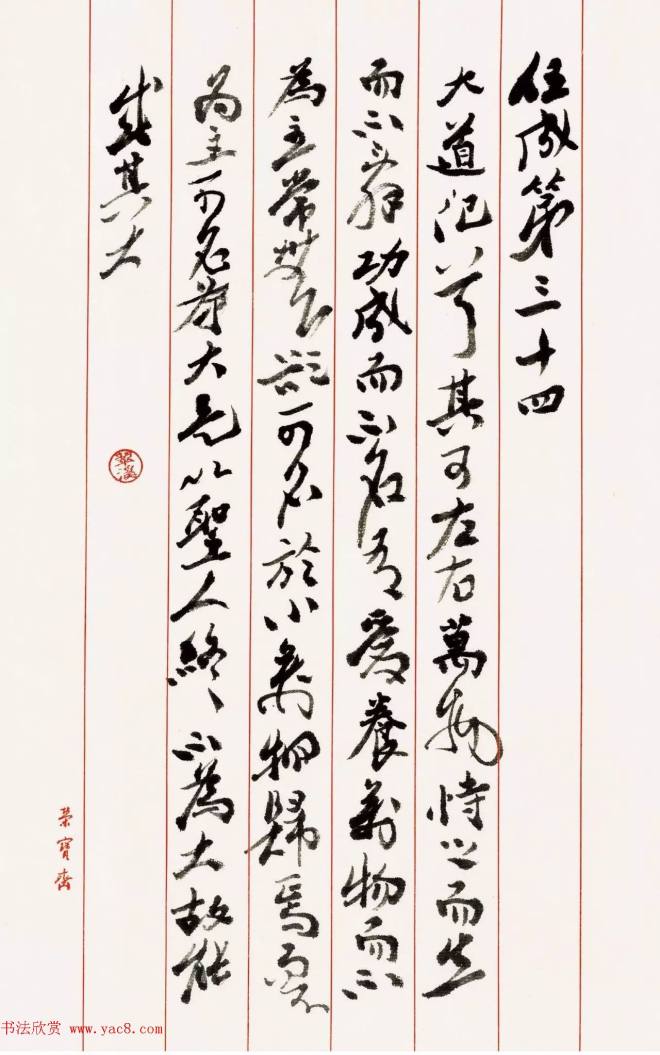 任成第三十四
大道汜兮其可左右萬物恃之而生
而不辭功成而不名有愛養萬物而不
為主常無欲可名於小萬物歸焉而不
為主可名為大是以聖人終不為大故能
成其大
榮寶齋
书法欣赏 www.yac8.com